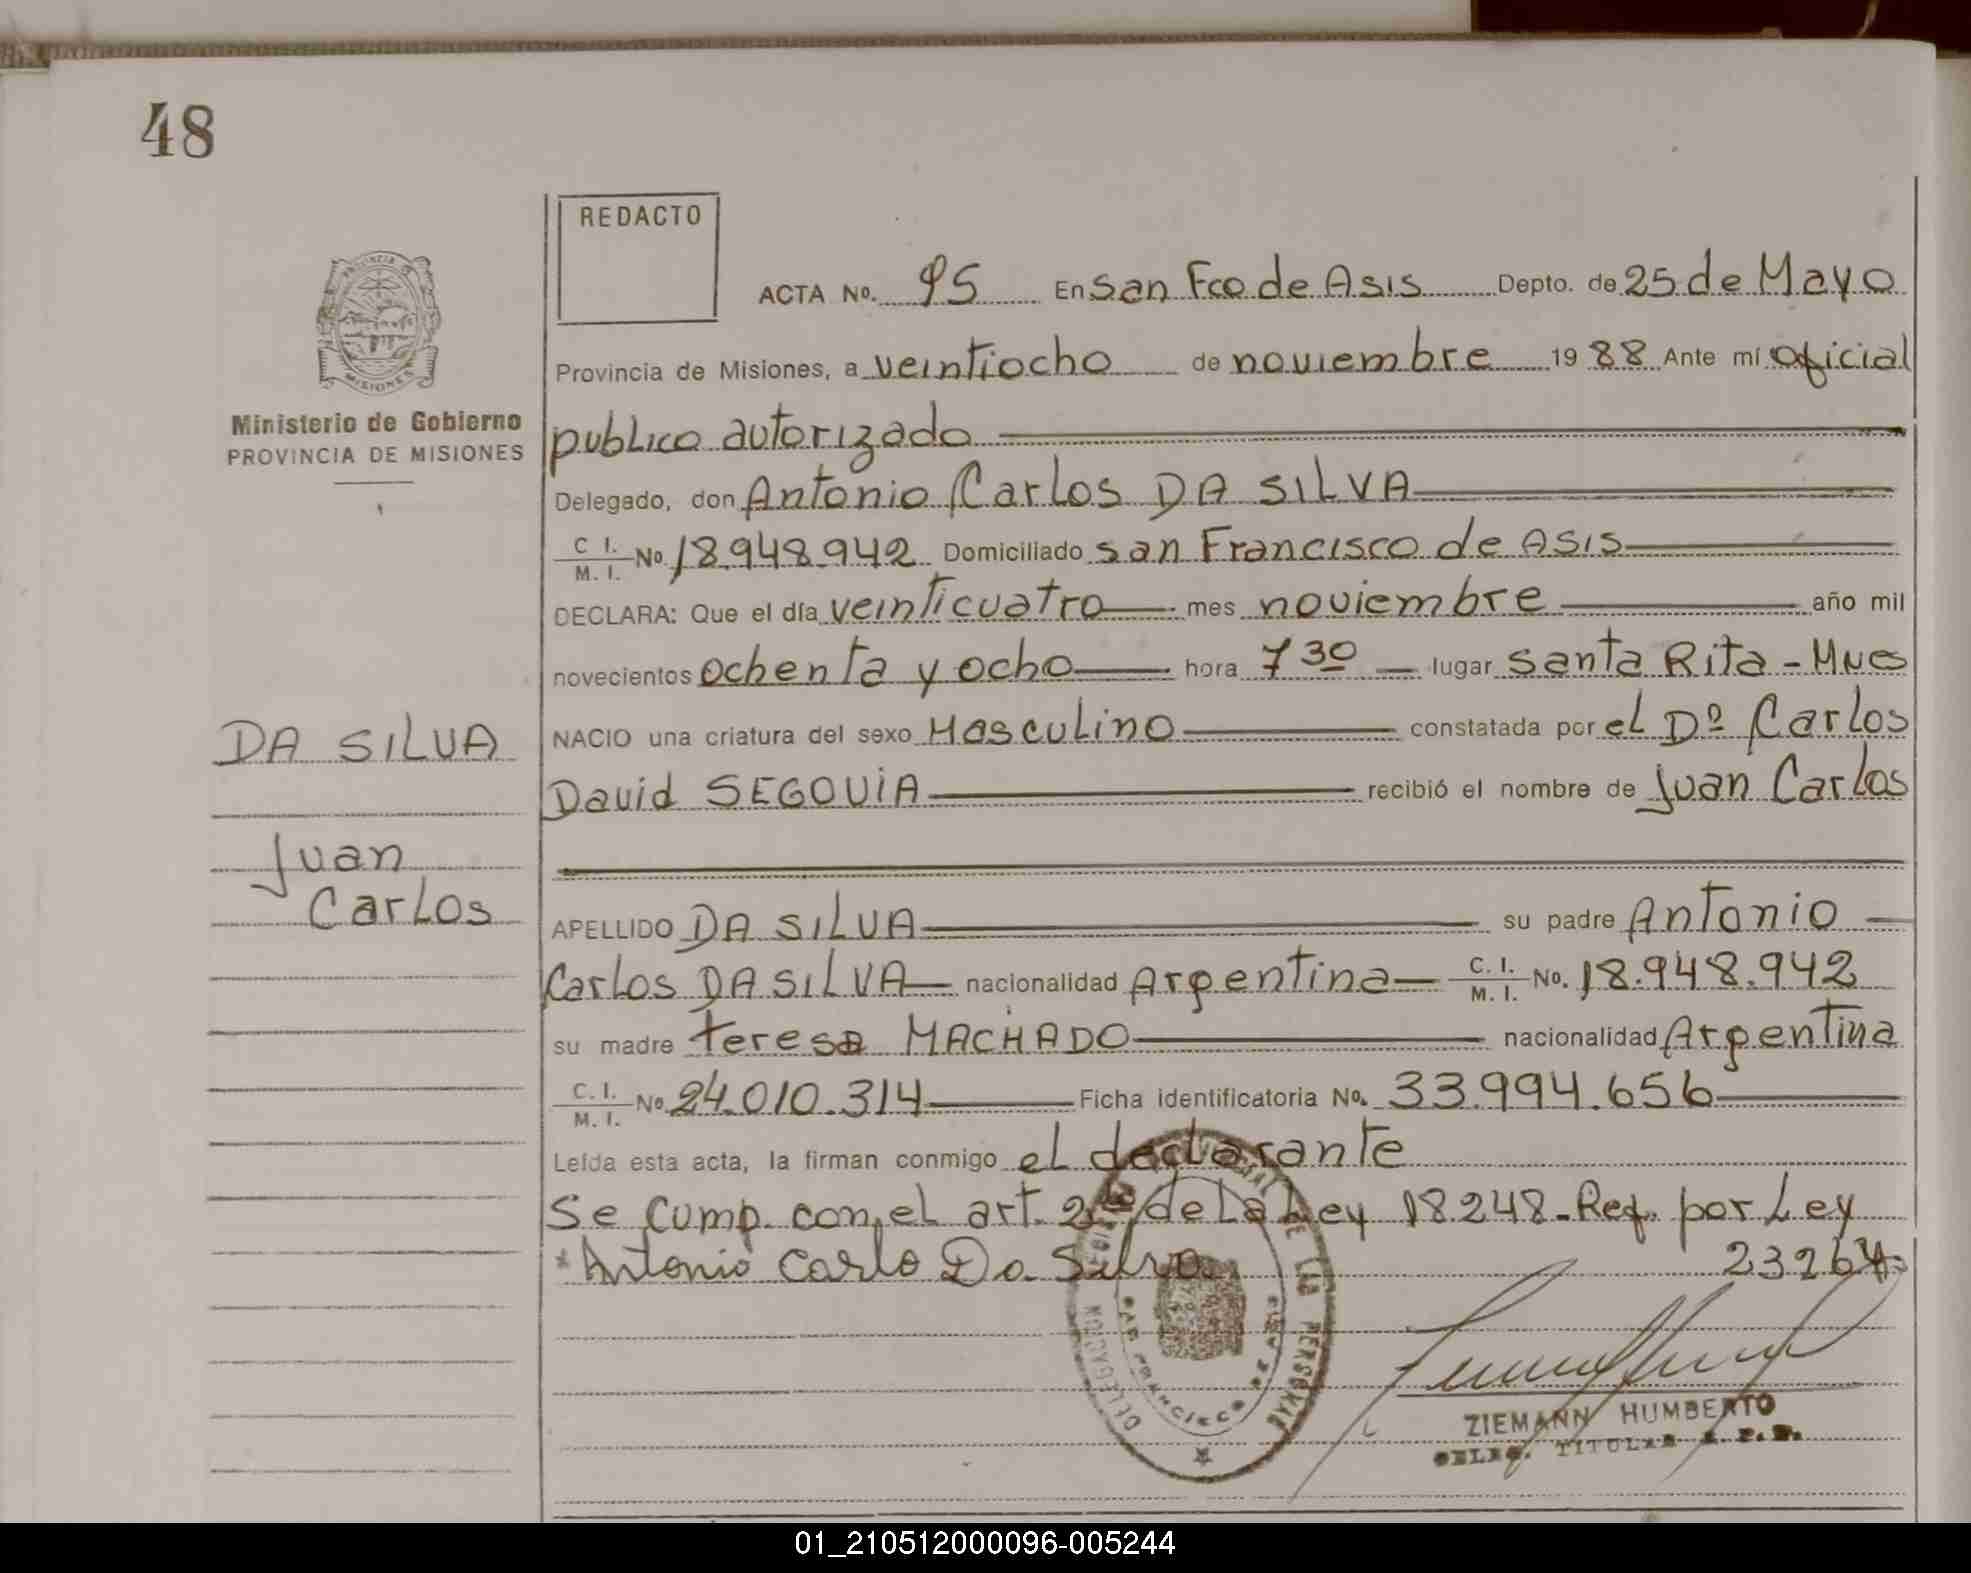 48
REDACTO
ACTA No. 95 En San Fco de Asis Depto. de 25 de Mayo
Provincia de Misiones, a veintiocho de noviembre 1988 Ante mí oficial
publico autorizado
Delegado, don Antonio Carlos DA SILVA
C I. / M. I. No. 18.948.942 Domiciliado San Francisco de ASIS
DECLARA: Que el día veinticuatro mes noviembre año mil
novecientos ochenta y ocho hora 7 30 lugar Santa Rita - Mnes
NACIO una criatura del sexo Masculino constatada por el Dº Carlos
David SEGOVIA recibió el nombre de Juan Carlos
APELLIDO DA SILVA su padre Antonio
Carlos DA SILVA nacionalidad Argentina C. I. / M. I. No. 18.948.942
su madre teresa MACHADO nacionalidad Argentina
C. I. / M. I. No. 24.010.314 Ficha identificatoria No. 33.994.656
Leída esta acta, la firman conmigo el declarante
Se cump. con el art. de la Ley 18248 - Ref. por Ley
23264
Antonio Carlo Da Silva
PROVINCIA DE MISIONES
Ministerio de Gobierno
PROVINCIA DE MISIONES
DA SILVA
Juan
Carlos
DELEGACION DE LAS PERSONAS
SAN FRANCISCO DE ASIS
ZIEMANN HUMBERTO
DELEG. TITULAR R. P. P.
01_210512000096-005244